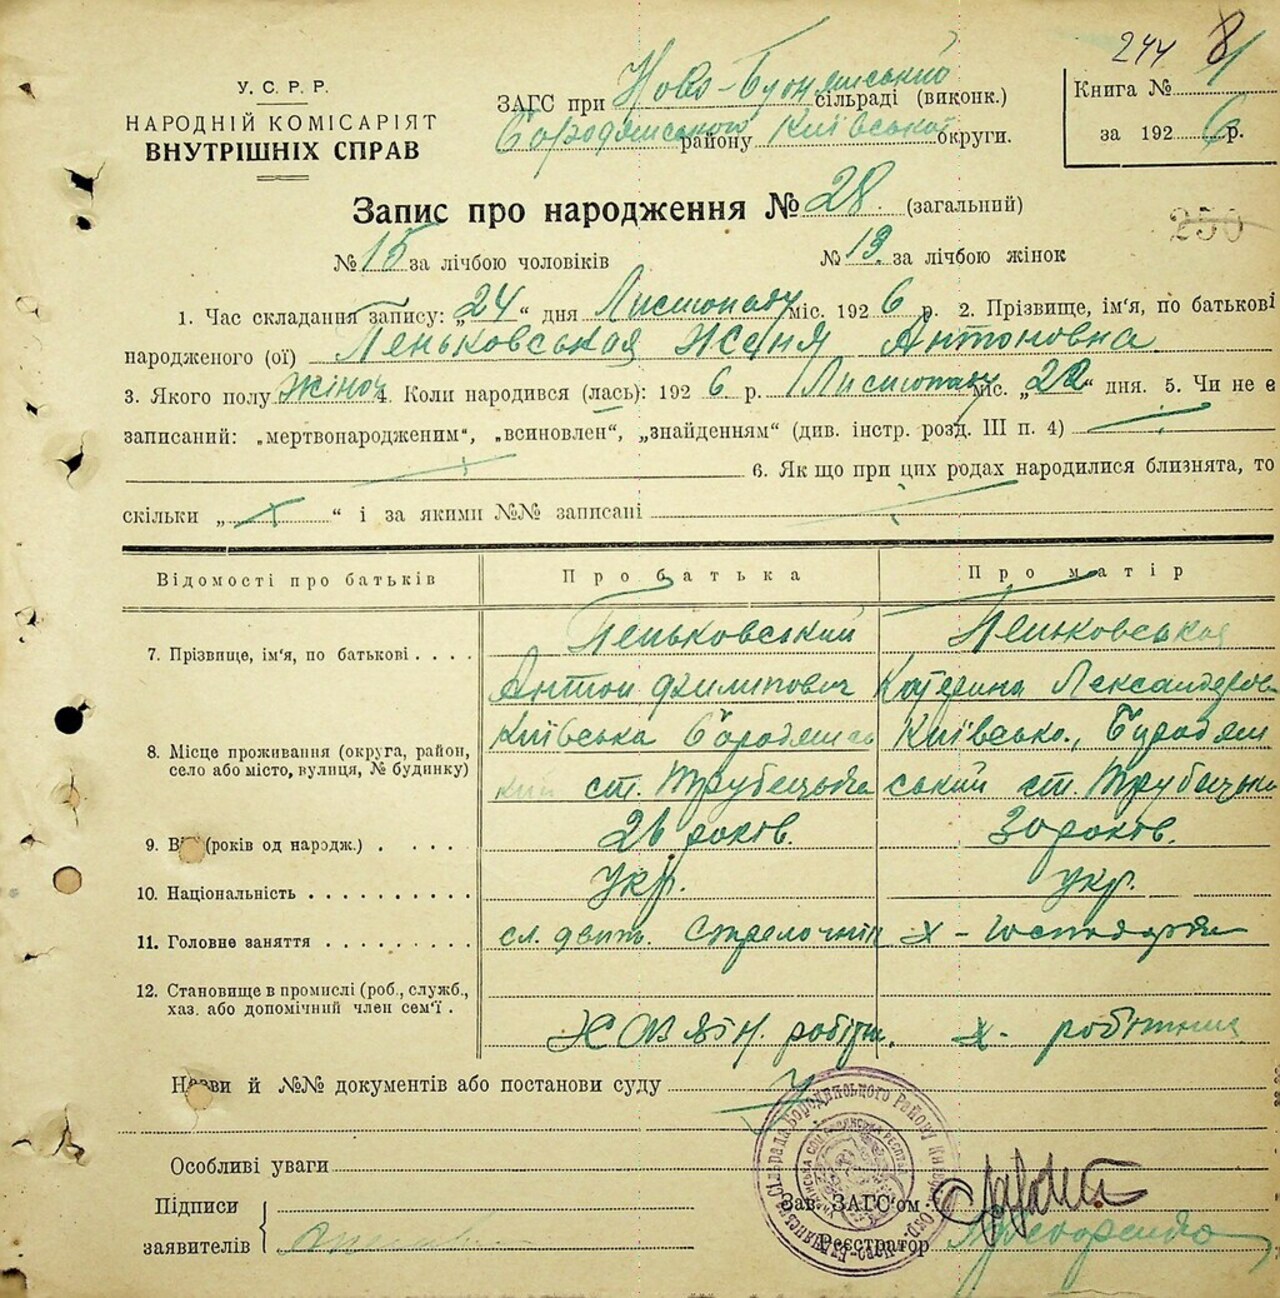 244 8/1
У. С. Р. Р.
НАРОДНІЙ КОМІСАРІЯТ
ВНУТРІШНІХ СПРАВ
ЗАГС при Ново-Буднянський сільраді (виконк.)
Бородянського району Київської округи.
Книга №
за 1926 р.
Запис про народження № 28. (загальний)
250
№ 15 за лічбою чоловіків № 13. за лічбою жінок
1. Час складання запису: „24“ дня Листопаду міс. 1926 р. 2. Прізвище, ім'я, по батькові
народженого (ої) Пеньковськая Женя Антоновна
3. Якого полу жіноч 4. Коли народився (лась): 1926 р. Листопаду міс. „22“ дня. 5. Чи не є
записаний: „мертвонародженим“, „всиновлен“, „знайденням“ (див. інстр. розд. III п. 4)
6. Як що при цих родах народилися близнята, то
скільки „ “ і за якими №№ записані
Відомості про батьків Про батька Про матір
7. Прізвище, ім'я, по батькові Пеньковський Пеньковськая
Антон Филипович Катерина Лександров
8. Місце проживання (округа, район, Київська Бородянсь Київсько., Бородян
село або місто, вулиця, № будинку) кий ст. Трубецька ський ст. Трубецька
9. Вік (років од народж.) 26 років. 30 років.
10. Національність Укр. укр.
11. Головне заняття сл. двит. Стрелочнік х - господарка
12. Становище в промислі (роб., служб.,
хаз. або допомічний член сем'ї . Хазяін. робітн. х - робітниця
Назви й №№ документів або постанови суду
Особливі уваги
Підписи
заявителів
Зав. ЗАГС'ом
Реєстратор